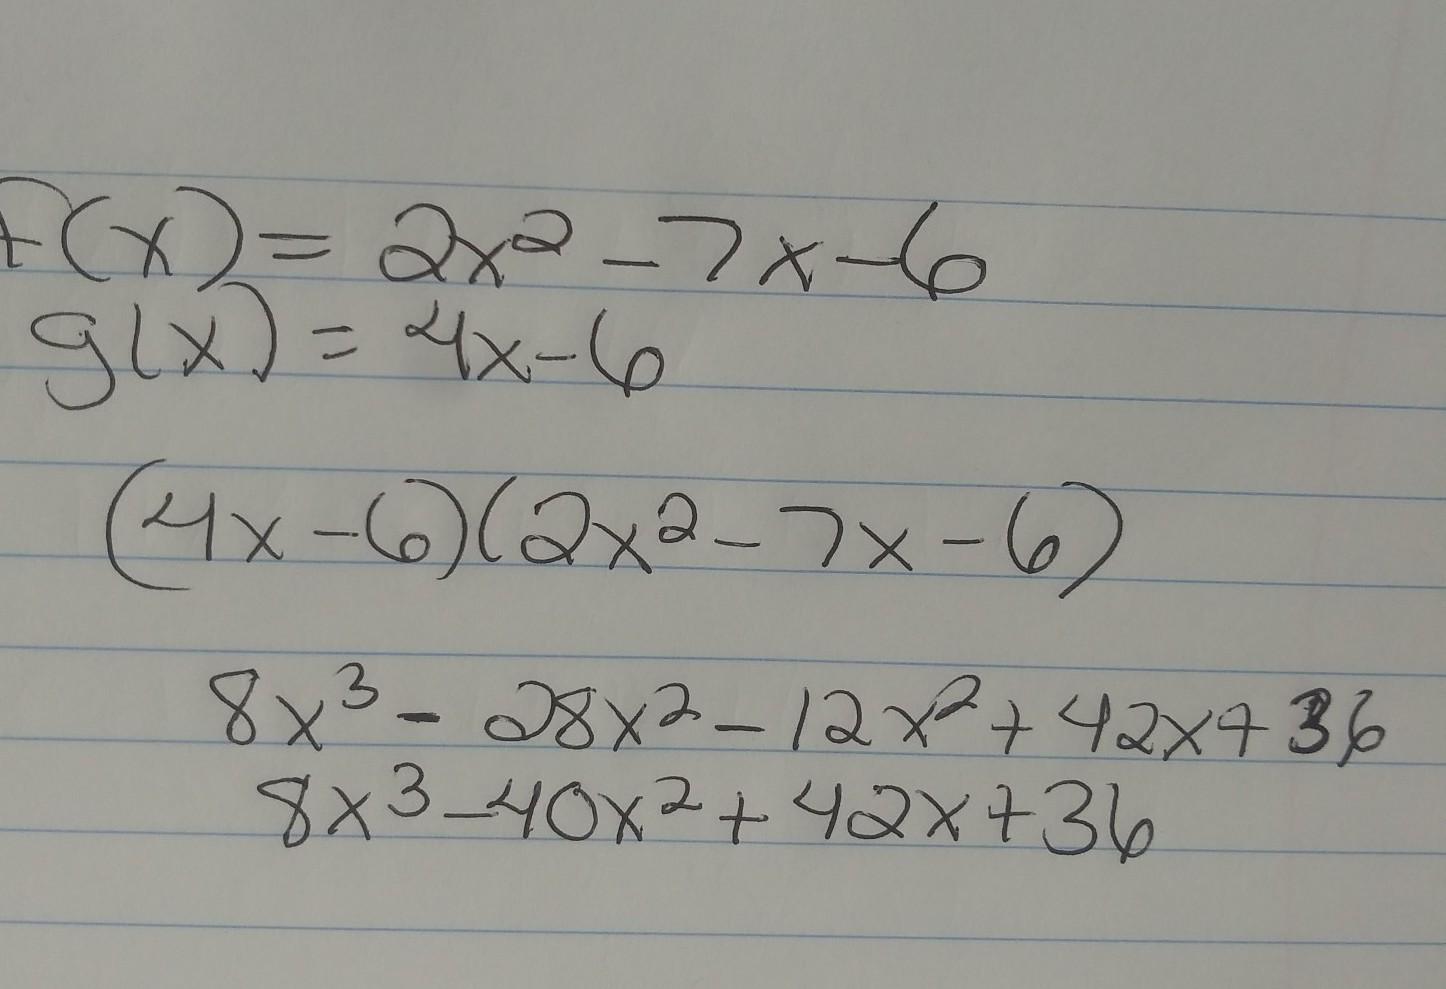 f(x) = 2x² - 7x - 6
g(x) = 4x - 6
(4x - 6)(2x² - 7x - 6)
8x³ - 28x² - 12x² + 42x + 36
8x³ - 40x² + 42x + 36